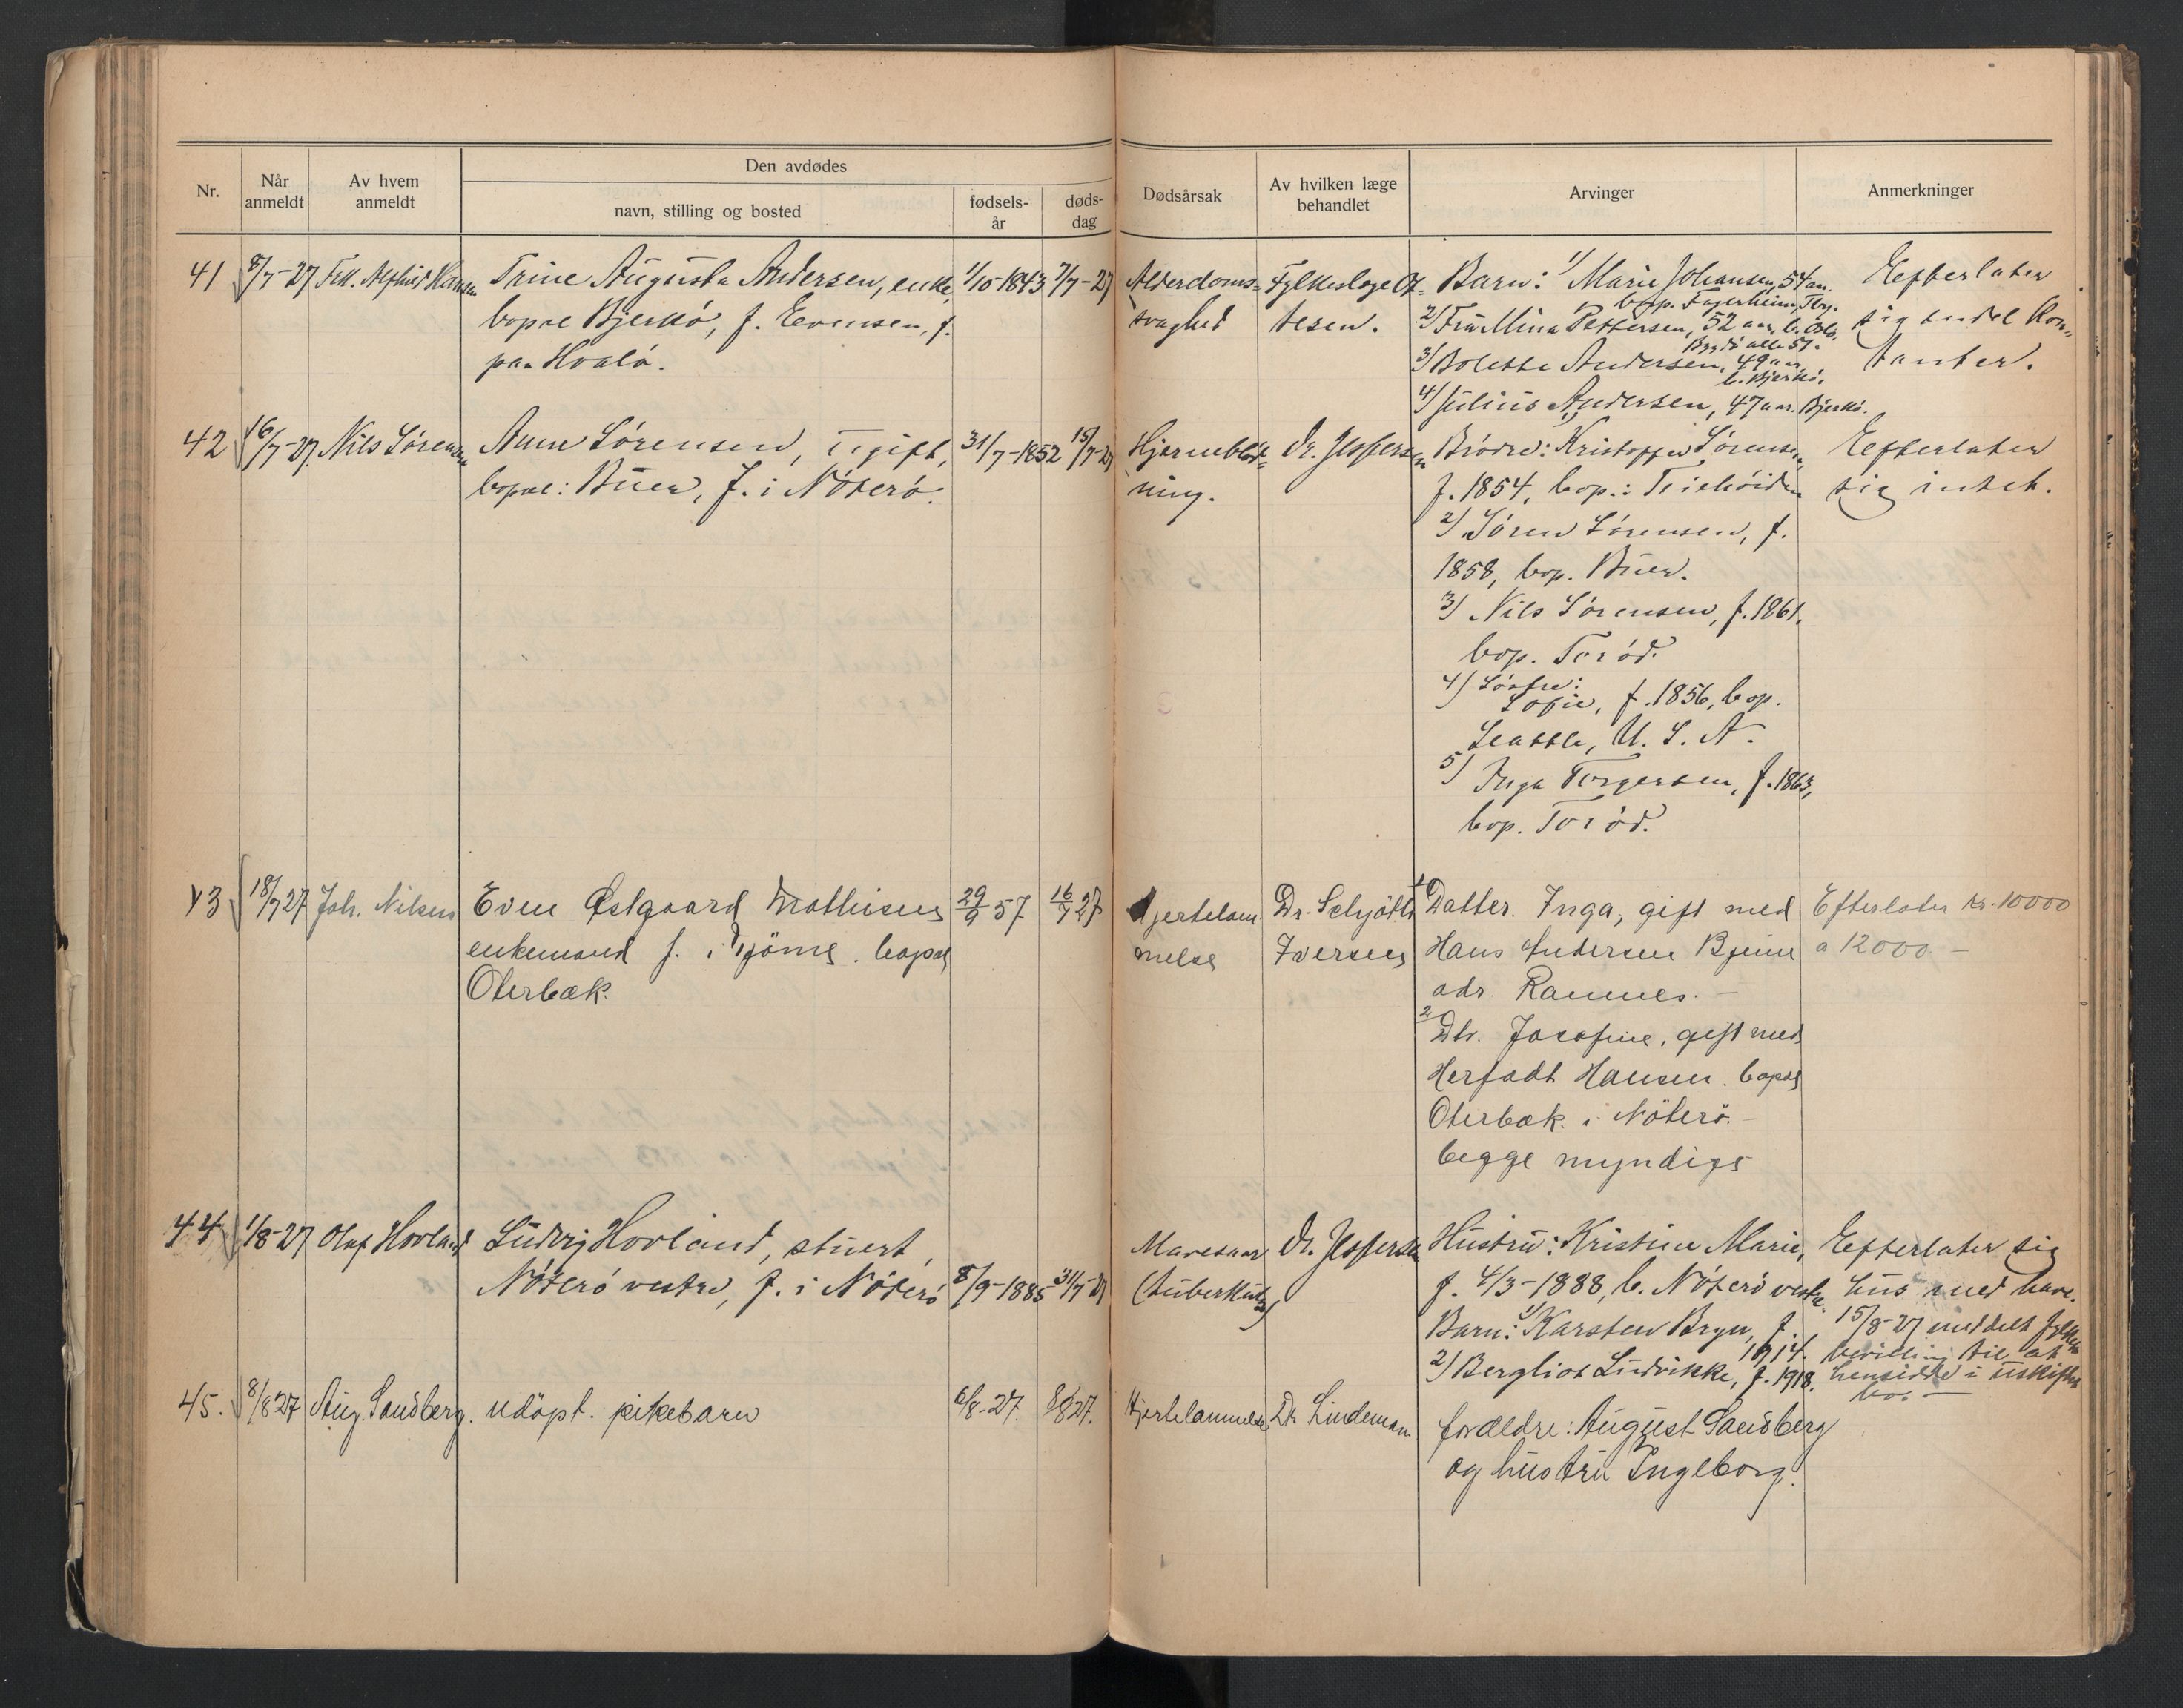 Nr.
Når anmeldt
Av hvem anmeldt
Den avdødes
navn, stilling og bosted
fødsels-år
døds-dag
Dødsårsak
Av hvilken læge behandlet
Arvinger
Anmerkninger
41 8/7-27 Frk. Hansen Trine Augusta Andersen, enke, 1/10-1843 7/7-27
bopæl Bjerkö, f. Evensen, f.
paa Hvalö.
Alderdoms-
svaghed
Fylkeslæge Ot-
tesen.
Barn: 1/ Marie Johansen, 54 aar.
bop. Fagerheim, Tbg.
2/ Fru Mina Pettersen, 52 aar, b. Oslo,
Bygdö alle 51.
3/ Bolette Andersen, 49 aar,
b. Bjerkö.
4/ Julius Andersen, 47 aar. Bjerkö.
Eefterlater
sig endel kon-
tanter.
42 16/7-27. Nils Sörensen Anne Sörensen, ugift, 31/7-1852 15/7-27
bopæl: Buer, f. i Nöterö.
Hjerneblöd-
ning.
Dr. Jespersen
Brödre: Kristoffer Sörensen,
f. 1854, bop.: Teiehöiden
2/ Sören Sörensen, f.
1858, bop. Buer.
3/ Nils Sörensen, f. 1861,
bop. Toröd.
4/ Söstre:
Sofie, f. 1856, bop.
Seattle, U. S. A.
5/ Inga Torgersen, f. 1863,
bop. Toröd.
Eefterlater
sig intet.
43 18/7 27 Joh. Nilsen Even Østgaard Mathisen 29/9 57 16/7 27
enkemand f. i Tjöme. bopæl
Oterbæk.
Hjertelam
melse
Dr. Schjøtt
Iversen
1 Datter. Inga, gift med
Hans Andersen Bjerme
adr. Ramnes. -
2 Dtr. Josefine, gift med
Herfadt Hansen. bopæl
Oterbæk i Nöterö. -
begge myndige
Efterlater kr. 10000
a 12000 -
44 1/8-27 Olaf Hovland Ludvig Hovland, stuert,
Nöterö vestre, f. i Nöterö 8/9-1885 31/7-27
Mavesaar
(tuberkulose)
Dr. Jespersen
Hustru: Kristine Marie,
f. 4/3-1888, b. Nöterö vestre.
Barn: 1/ Karsten Bryn, f.
1914.
2/ Bergliot Ludvikke, f. 1918.
Eefterlater sig
hus med have.
15/8-27 meddelt fylkets
bevilling til at
hensidde i uskiftet
bo. -
45. 8/8 27 Aug. Sandberg. udöpt. pikebarn 6/8-27. 8/8 27.
Hjertelammelse Dr. Lindeman
forældre: August Sandberg
og hustru Ingeborg.